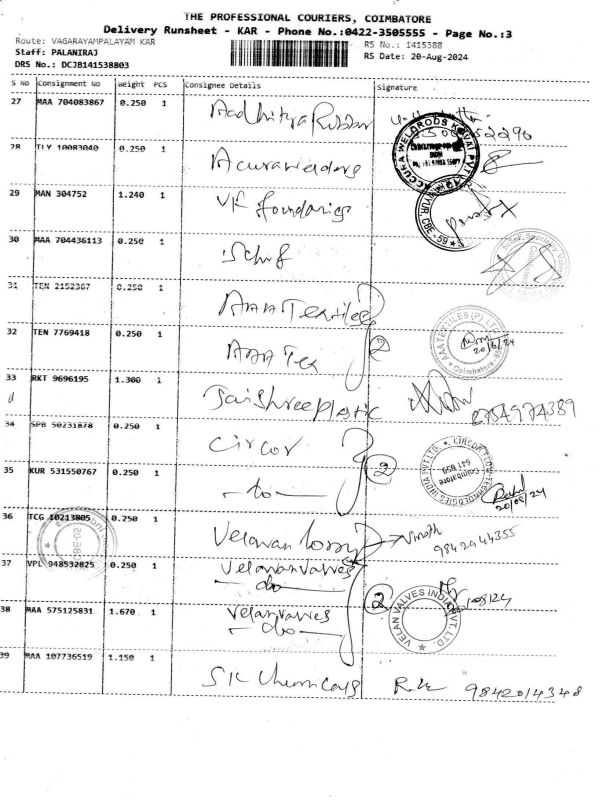 THE PROFESSIONAL COURIERS, COIMBATORE
Delivery Runsheet - KAR - Phone No.:0422-3505555 - Page No.:3
Route: VAGARAYAMPALAYAM KAR
RS No.: 1415388
Staff: PALANIRAJ
RS Date: 20-Aug-2024
DRS No.: DCJB141538803
S No Consignment No Weight PCS Consignee Details Signature
27 MAA 704083867 0.250 1 Aadhitya Rubber
28 TLY 10083040 0.250 1 Acurawelders
29 MAN 304752 1.240 1 VK foundaries
30 MAA 704436113 0.250 1
31 TEN 2152367 0.250 1 AAA Textiles
32 TEN 7769418 0.250 1 AAA Tex 2
AAA TEXTILES (P) LTD
Coimbatore
20/8/24
33 RKT 9696195 1.300 1 Jaishree plastic
34 SPB 50231878 0.250 1 Circor
35 KUR 531550767 0.250 1 - do - 2
CIRCOR FLOW TECHNOLOGIES INDIA PVT LTD.
Coimbatore
641 659
20/08/24
36 TCG 10213805 0.250 1 Velavan lorry Vinoth
9842944355
37 VPL 948532825 0.250 1 Velanvalves
- do -
38 MAA 575125831 1.670 1 Velanvalves 2
- do -
VELAN VALVES INDIA PVT. LTD.
39 MAA 107736519 1.150 1 SK Chemicals 9842014348